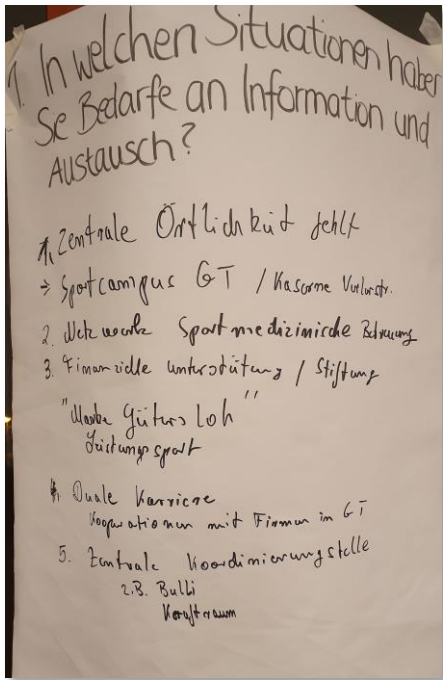 1. In welchen Situationen haben
Sie Bedarfe an Information und
Austausch?
1. Zentrale Örtlichkeit fehlt
→ Sportcampus GT / Kaserne Verlerstr.
2. Netzwerk Sportmedizinische Betreuung
3. Finanzielle Unterstützung / Stiftung
"Marke Gütersloh"
Leistungssport
4. Duale Karriere
Kooperationen mit Firmen in GT
5. Zentrale Koordinierungstelle
z.B. Bulli
Kraftraum